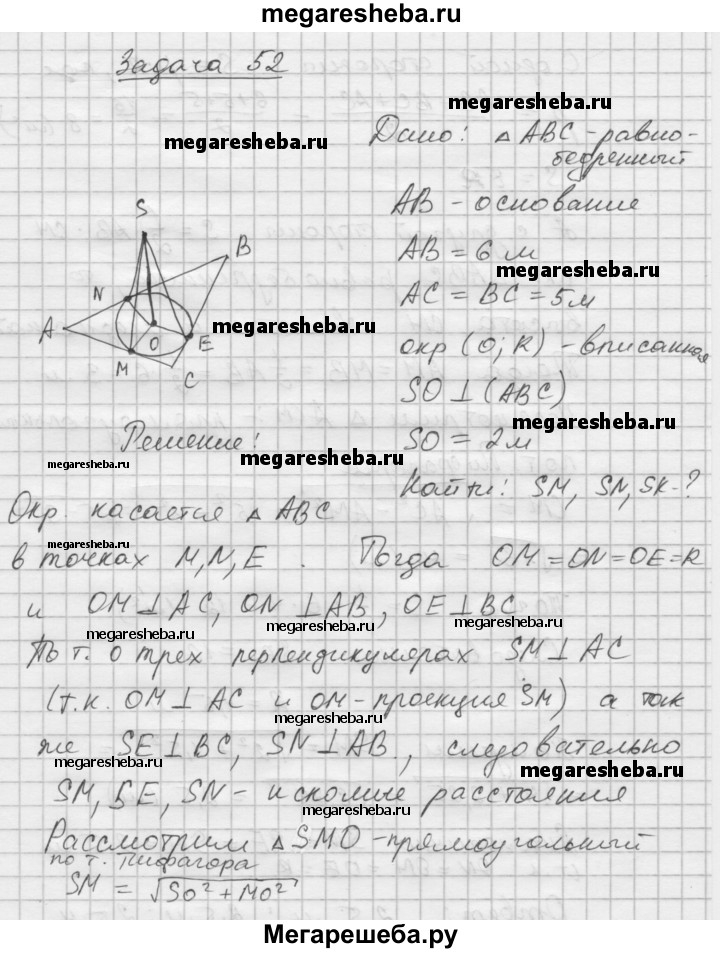 megaresheba.ru
Задача 52
megaresheba.ru
megaresheba.ru
Дано: △ ABC - равно-
бедренный
AB - основание
AB = 6 м
megaresheba.ru
AC = BC = 5 м
окр (O; R) - вписанная
SO ⊥ (ABC)
megaresheba.ru
SO = 2 м
Найти: SM, SN, SK - ?
S
B
N
megaresheba.ru
A
O
E
M
C
Решение:
megaresheba.ru
megaresheba.ru
Окр. касается △ ABC
megaresheba.ru
в точках M, N, E . Тогда OM = ON = OE = R
megaresheba.ru
и OM ⊥ AC, ON ⊥ AB, OE ⊥ BC
megaresheba.ru
megaresheba.ru
megaresheba.ru
По т. о трех перпендикулярах SM ⊥ AC
megaresheba.ru
(т.к. OM ⊥ AC и OM - проекция SM) а так
megaresheba.ru
же SE ⊥ BC, SN ⊥ AB, следовательно
megaresheba.ru
megaresheba.ru
megaresheba.ru
SM, SE, SN - искомые расстояния
Рассмотрим △ SMO - прямоугольный
по т. Пифагора
SM = √SO² + MO²
megaresheba.ru
Мегарешеба.ру